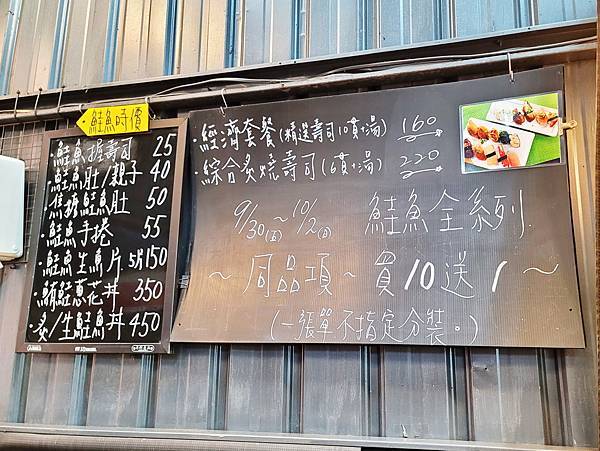 鮭魚時價
・鮭魚握壽司 25
鮭魚肚/親子 40
焦糖鮭魚肚 50
・鮭魚手捲 55
・鮭魚生魚片 5片150
・鮪鮭蔥花丼 350
・炙/生鮭魚丼 450
・經濟套餐(精選壽司10貫+湯) 160
・綜合炙燒壽司(6貫+湯) 220
9/30(五)~10/2(日) 鮭魚全系列
~同品項~買10送1~
(一張單不指定分裝。)